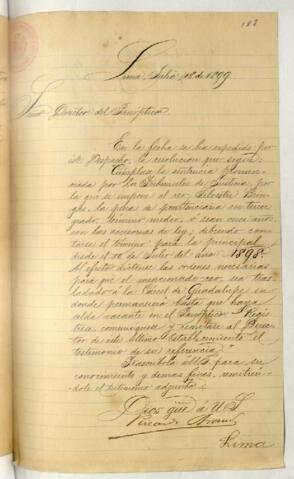 183
Lima, Julio 18 de 1899.
Señor Director del Panoptico.
En la fecha se ha expedido por
este Despacho, la resolucion que sigue:
Cúmplase la sentencia pronun-
ciada por los Tribunales de Justicia, por
la que se impone al reo Silvestre
la pena de penitenciaria en tercer
grado, término medio, ó sean once años,
con las accesorias de ley; debiendo con-
tarse el término para la principal
desde el 10 de Julio del año 1898.
Al efecto díctense las ordenes necesarias
para que el mencionado reo sea tras-
ladado á la Carcel de Guadalupe en
donde permanecerá hasta que haya
celda vacante en el Panoptico. Regis-
trese, comuniquese y remítase al Direc-
tor de este último Establecimiento el
testimonio de su referencia.
Trascríbola á US. para su
conocimiento y demas fines, remitién-
dole el testimonio adjunto.
Dios gue. á US.
Ricardo
Lima